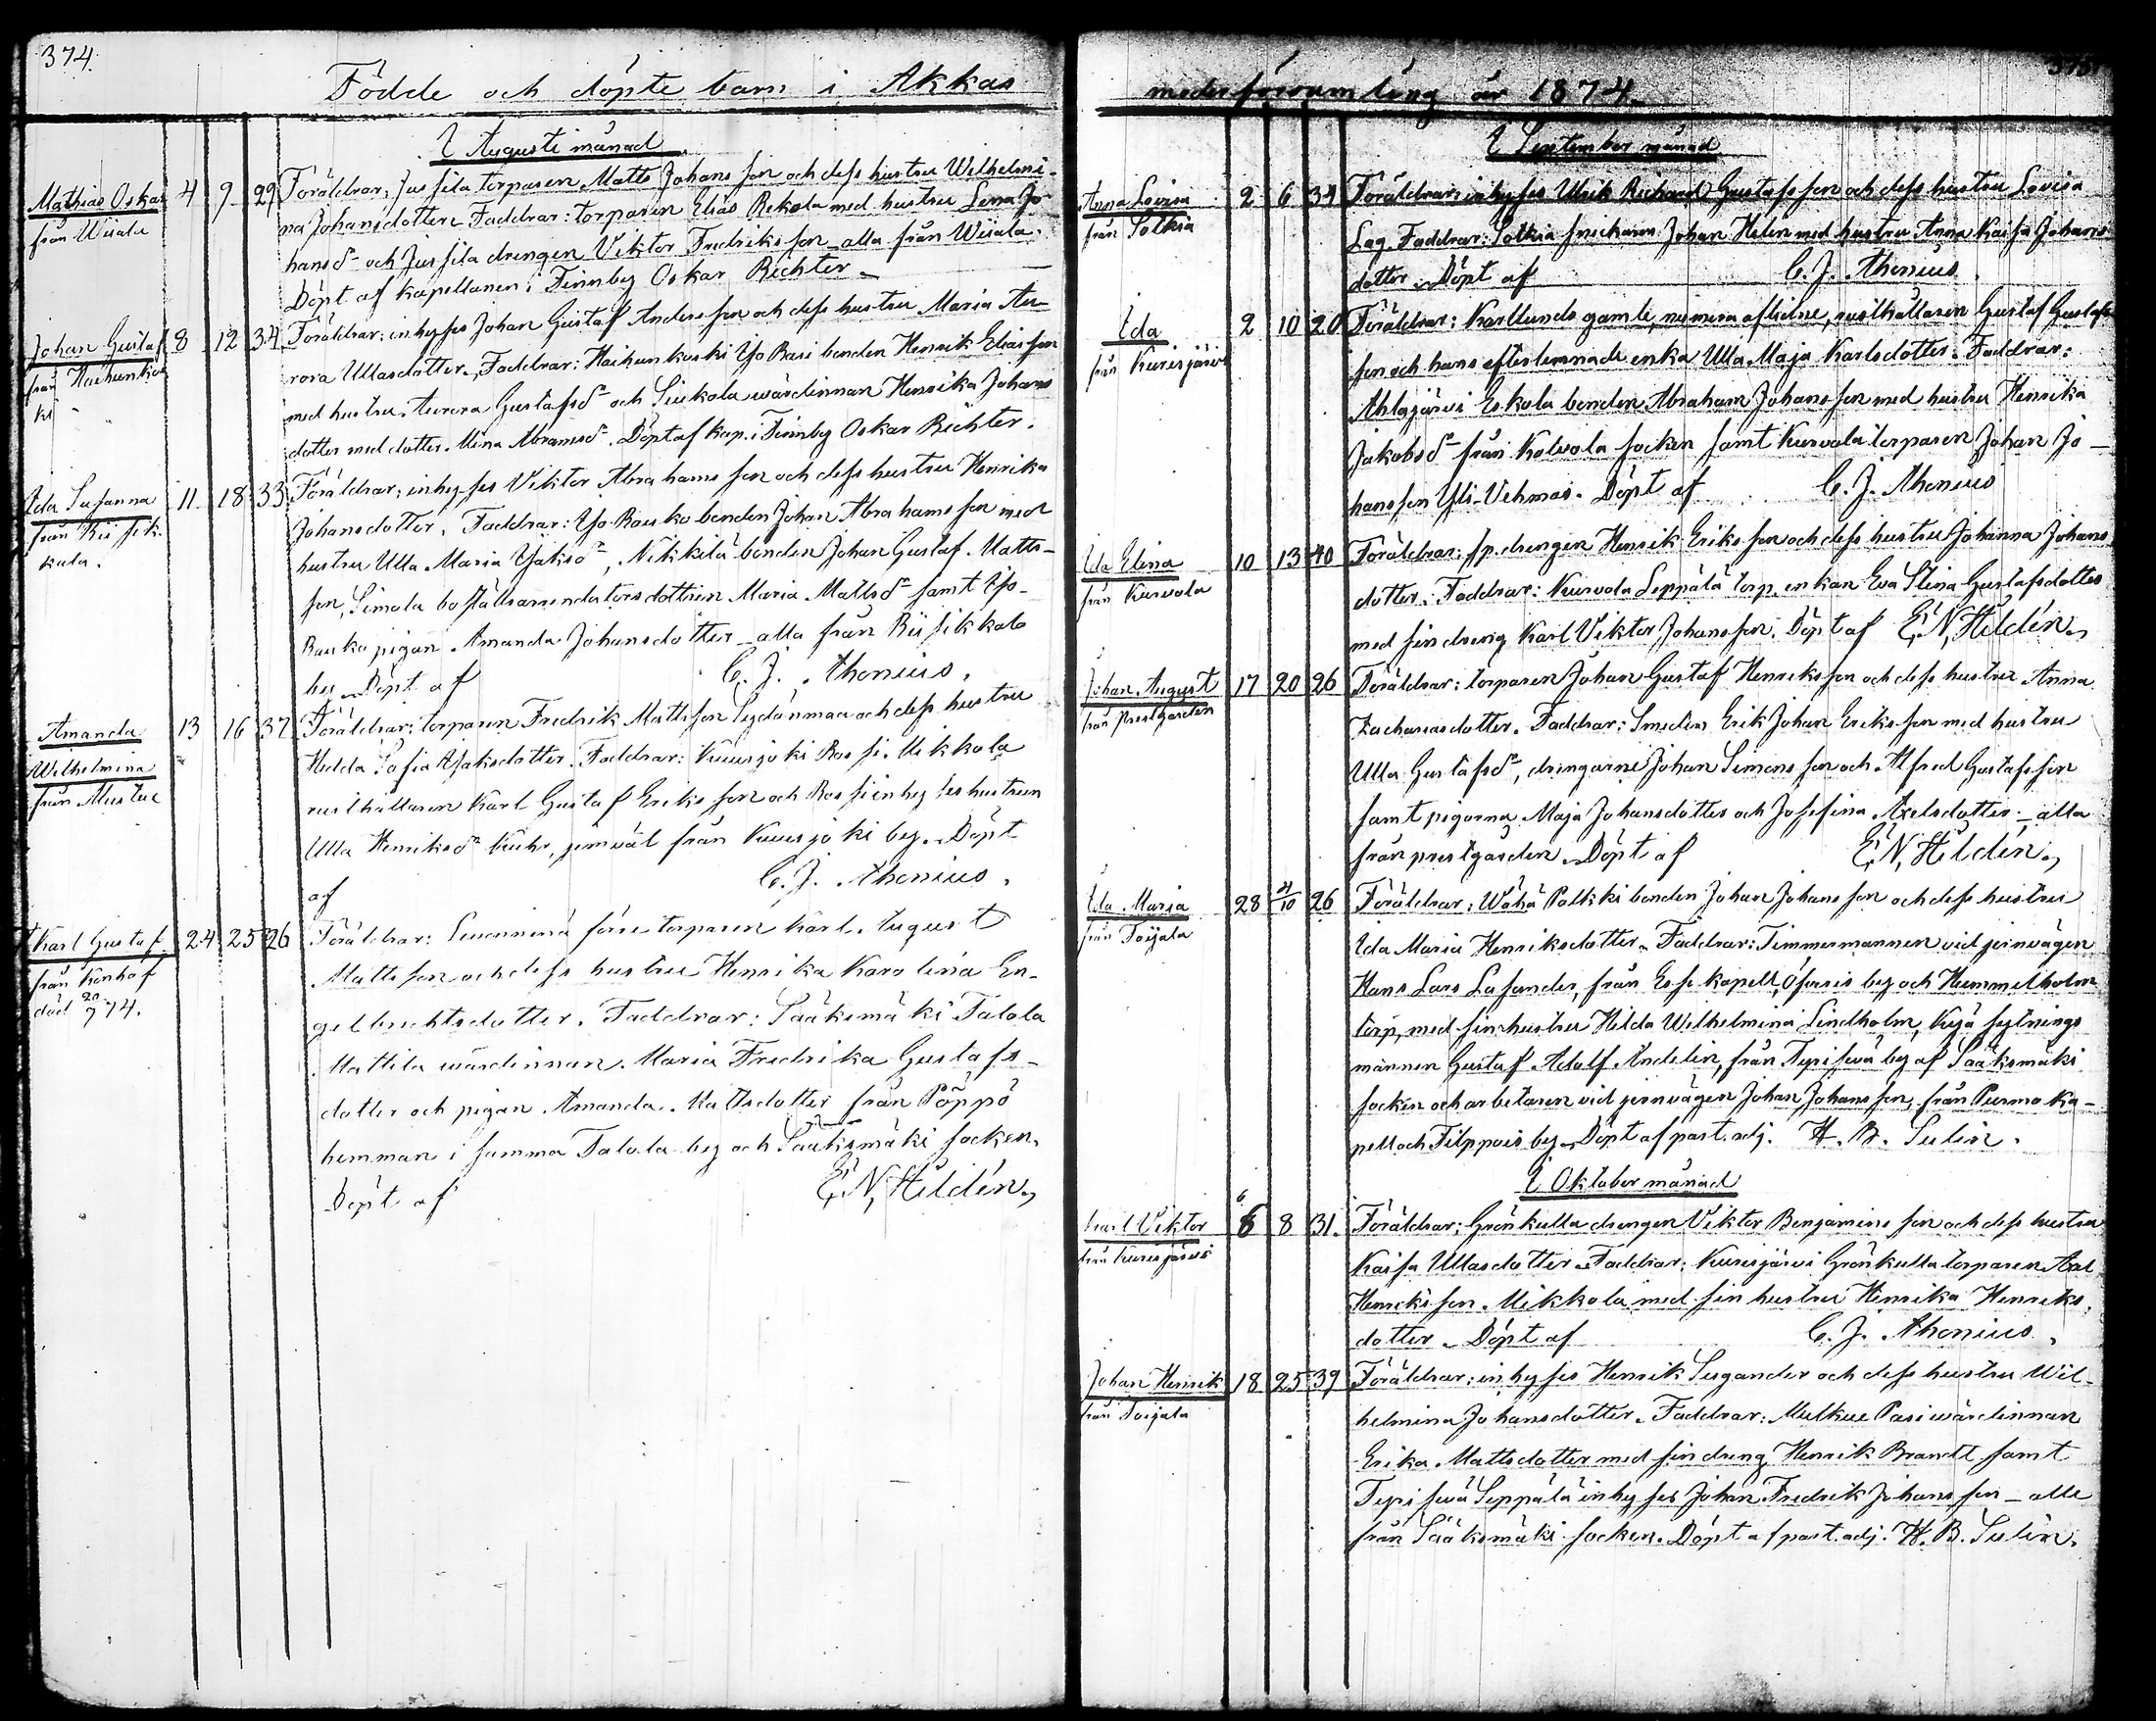 374.
Födde och döpte barn i Akkas
I Augusti månad
Mathias Oskar 4 9 29 Föräldrar: Jussila torparen Matts Johansson och dess hustru Wilhelmi-
från Wiiala na Johansdotter. Faddrar: torparen Elias Rekola med hustru Lena Jo-
hansdr och Jussila drengen Viktor Fredriksson – alla från Wiiala.
Döpt af kapellanen i Finnby Oskar Richter.
Johan Gustaf 8 12 34 Föräldrar: inhyses Johan Gustaf Andersson och dess hustru Maria Au-
från Haihunkos rora Ullasdotter. Faddrar: Haihunkoski Yo Rasi bonden Henrik Eliasson
ki med hustru Aurora Gustafsdr och Siukola wärdinnan Henrika Johans
dotter med dotter Mina Abramsdr. Döpt af kap. i Finnby Oskar Richter.
Ida Susanna 11 18 33 Föräldrar: inhyses Viktor Abrahamsson och dess hustru Henrika
från Riisik- Johansdotter. Faddrar: Yo-Rauko bonden Johan Abrahamsson med
kala. hustru Ulla Maria Isaksdr, Nikkilä bonden Johan Gustaf Matts-
son, Simola boställsarrendatorsdottren Maria Mattsdr samt Yo-
Rauko pigan Amanda Johansdotter – alla från Riisikkala
by. Döpt af C. J. Ahonius.
Amanda 13 16 37 Föräldrar: torparen Fredrik Mattsson Sydänmaa och dess hustru
Wilhelmina Hedda Sofia Isaksdotter. Faddrar: Kuurjoki Rossi-Uikkola
från Mustue rusthållaren Karl Gustaf Eriksson och Rossi inhyses hustrun
Ulla Henriksdr Kuhr, jemväl från Kuurjoki by. Döpt
af C. J. Ahonius.
Karl Gustaf 24 25 26 Föräldrar: torparen Karl August
från Konhof Mattsson och dess hustru Henrika Karolina En-
död 20/9 74. gelbrechtsdotter. Faddrar: Sääksmäki Talola
Mattila wärdinnan Maria Fredrika Gustafs-
dotter och pigan Amanda Mattsdotter från Pöppö
hemman i samma Talola by och Sääksmäki socken.
Döpt af E. N. Hildén.
moderförsamling år 1874.
I September månad
Anna Lovisa 2 6 34 Föräldrar: inhyses Ulrik Richard Gustafsson och dess hustru Lovisa
från Sotkia Lag. Faddrar: Sotkia snickaren Johan Helen med hustru Anna Kaisa Johans
dotter. Döpt af C. J. Ahonius.
Ida 2 10 20 Föräldrar: Karllunds gamle, numera aflidne, rusthållaren Gustaf Gustafs
från Kurisjärvi son och hans efterlemnade enka Ulla Maja Karlsdotter. Faddrar:
Ahlajärvi Eskola bonden Abraham Johansson med hustru Henrika
Jakobsdr från Kalvola socken samt Kurvola torparen Johan Jo-
hansson Yli-Vehmas. Döpt af C. J. Ahonius
Ida Elina 10 13 40 Föräldrar: sp. drengen Henrik Eriksson och dess hustru Johanna Johans
från Kurvola dotter. Faddrar: Kurvola Seppälä torp. enkan Eva Stina Gustafsdotter
med sin dreng Karl Viktor Johansson. Döpt af E. N. Hildén.
Johan August 17 20 26 Föräldrar: torparen Johan Gustaf Henriksson och dess hustru Anna
från prestgården Zachariasdotter. Faddrar: Smeden Erik Johan Eriksson med hustru
Ulla Gustafsdr, drengarne Johan Simonsson och Alfred Gustafsson
samt pigorna Maja Johansdotter och Josefina Axelsdotter – alla
från prestgården. Döpt af E. N. Hildén.
Ida Maria 28 4/10 26 Föräldrar: Wähä Palkki bonden Johan Johansson och dess hustru
från Toijala Ida Maria Henriksdotter. Faddrar: Timmermannen vid jernvägen
Hans Lars Lasander, från Esse kapell, by och Hummelholm
torp, med sin hustru Hilda Wilhelmina Lindholm, sytnings
mannen Gustaf Adolf Andelin, från by af Sääksmäki
socken och arbetaren vid jernvägen Johan Johansson, från Purmo ka-
pell och Filppois by. Döpt af past. adj. H. B. Sulin.
I Oktober månad
Karl Viktor 6 8 31. Föräldrar: Grönkulla drengen Viktor Benjaminsson och dess hustru
från Kurisjärvi Kaisa Ullasdotter. Faddrar: Kurisjärvi Grönkulla torparen
Henriksson Mikkola med sin hustru Henrika Henriks
dotter. Döpt af C. J. Ahonius.
Johan Henrik 18 25 39 Föräldrar: inhyses Henrik Sugander och dess hustru Wil-
från Toijala helmina Johansdotter. Faddrar: Pasi wärdinnan
Erika Mattsdotter med sin dreng Henrik Brandt samt
Seppälä inhyses Johan Fredrik Johansson – alla
från Sääksmäki socken. Döpt af past. adj. H. B. Sulin.